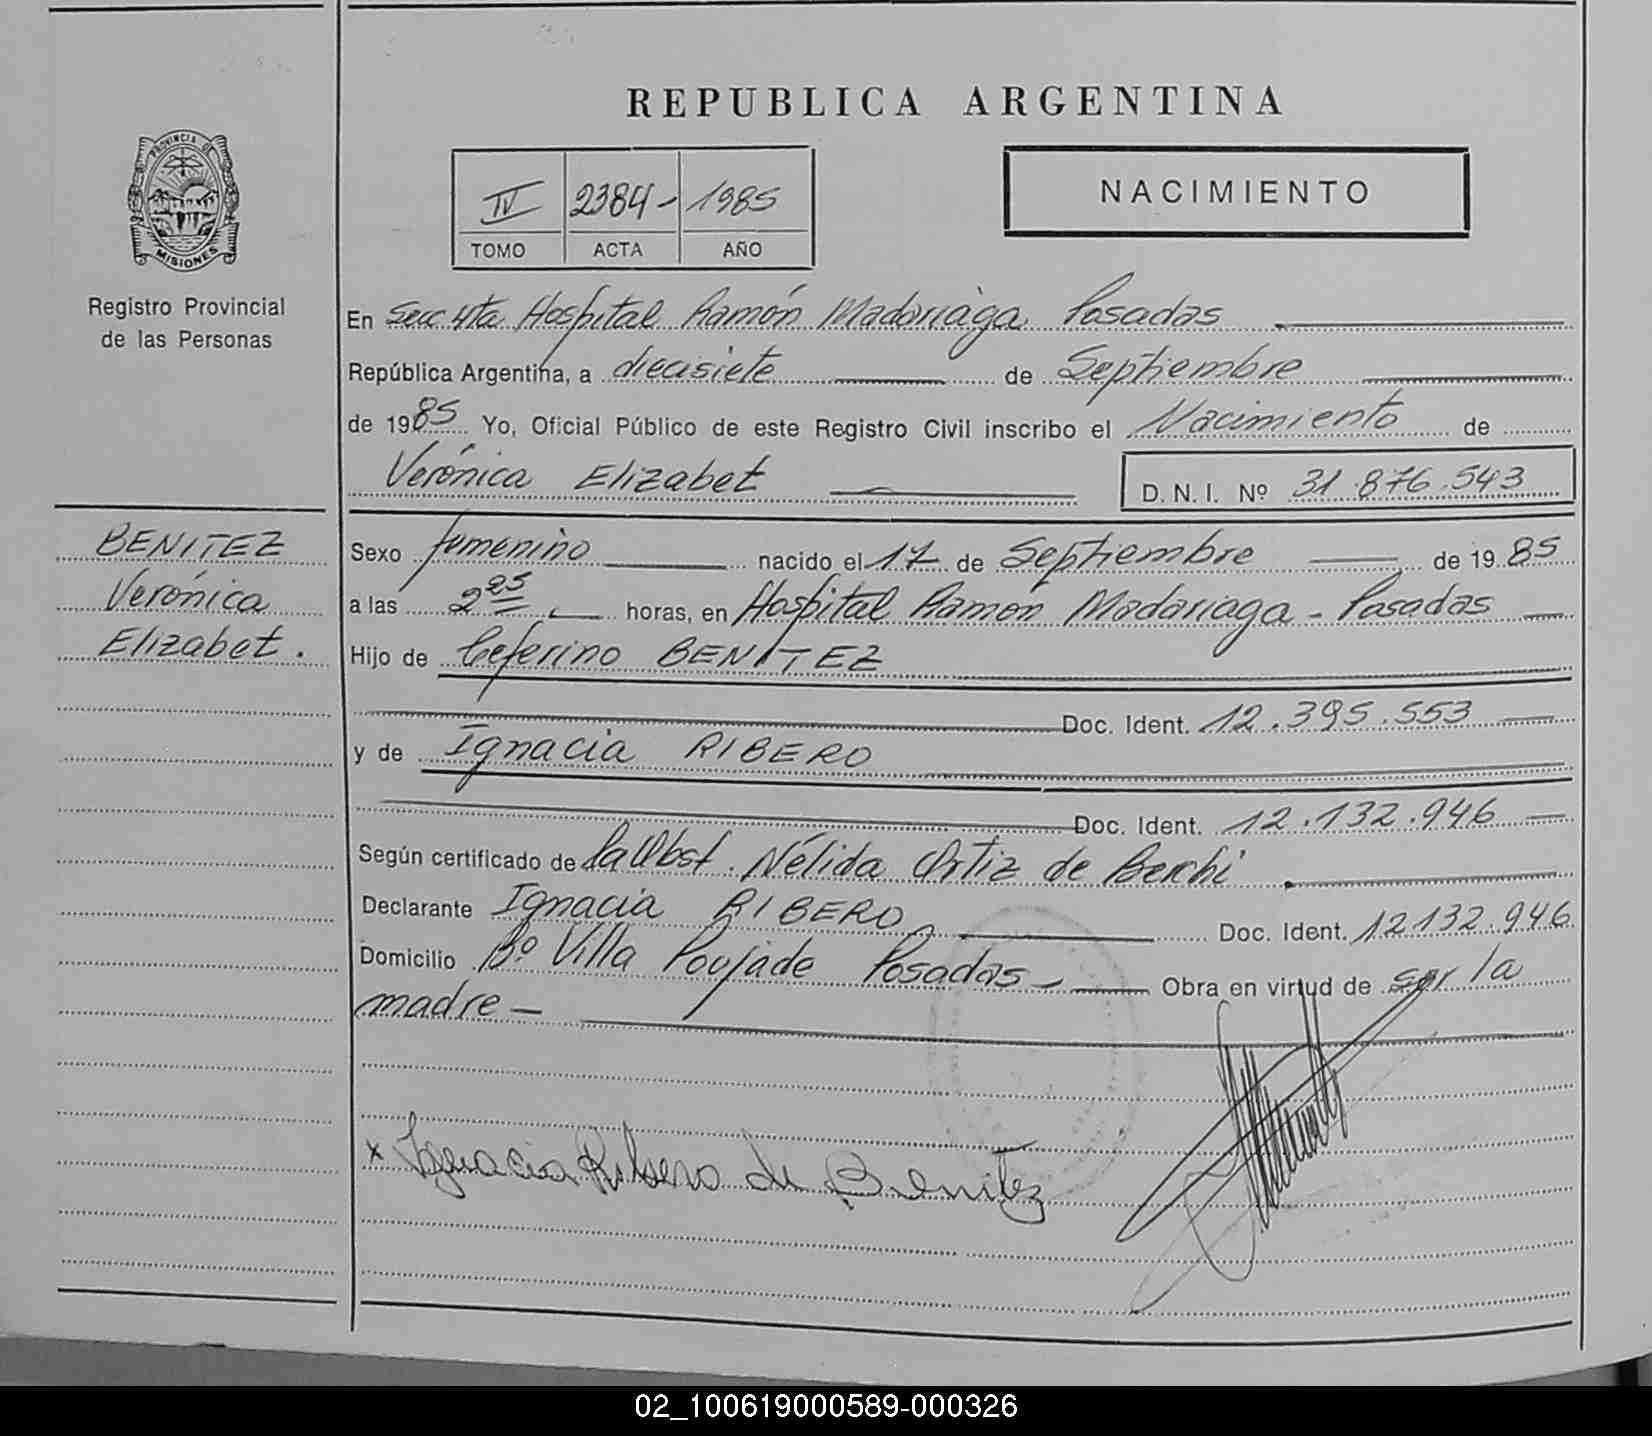 REPUBLICA ARGENTINA
PROVINCIA DE
MISIONES
Registro Provincial
de las Personas
IV 2384- 1985
TOMO ACTA AÑO
NACIMIENTO
En Secc 4ta Hospital Ramón Madariaga Posadas
República Argentina, a diecisiete de Septiembre
de 1985 Yo, Oficial Público de este Registro Civil inscribo el Nacimiento de
Verónica Elizabet D. N. I. Nº 31.876.543
BENITEZ
Verónica
Elizabet.
Sexo femenino nacido el 17 de Septiembre de 1985
a las 2 25 horas, en Hospital Ramón Madariaga - Posadas
Hijo de Ceferino BENITEZ
Doc. Ident. 12.395.553
y de Ignacia RIBERO
Doc. Ident. 12.132.946
Según certificado de la Obst. Nélida Ortiz de Berchi
Declarante Ignacia RIBERO Doc. Ident. 12.132.946
Domicilio Bº Villa Poujade Posadas - Obra en virtud de ser la
madre -
x Ignacia Ribero de Benitez
02_100619000589-000326